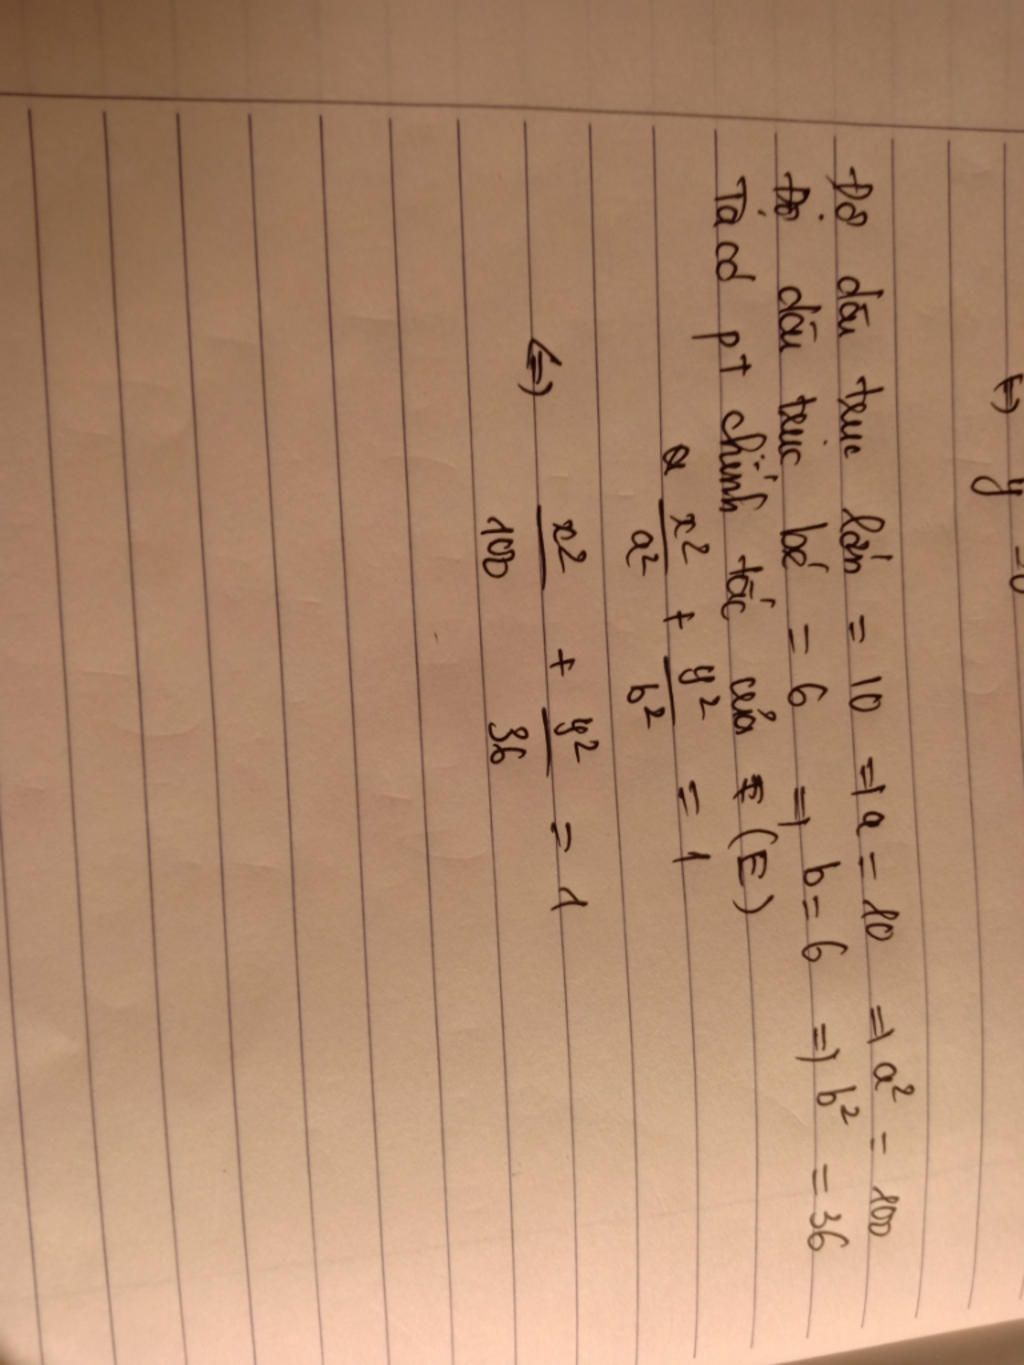 (=) y
Độ dài trục lớn = 10 => a = 10 => a² = 100
Độ dài trục bé = 6 => b = 6 => b² = 36
Ta có pt chính tắc của (E)
x²/a² + y²/b² = 1
<=> x²/100 + y²/36 = 1